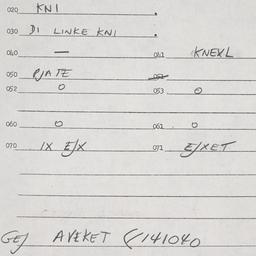 020 KNI
030 DI LINKE KNI
040 — 041 KNEXL
050 PJATE 052
052 0 053 0
060 0 061 0
070 IX E/X 071 E/XET
GEJ AVEKET 141040